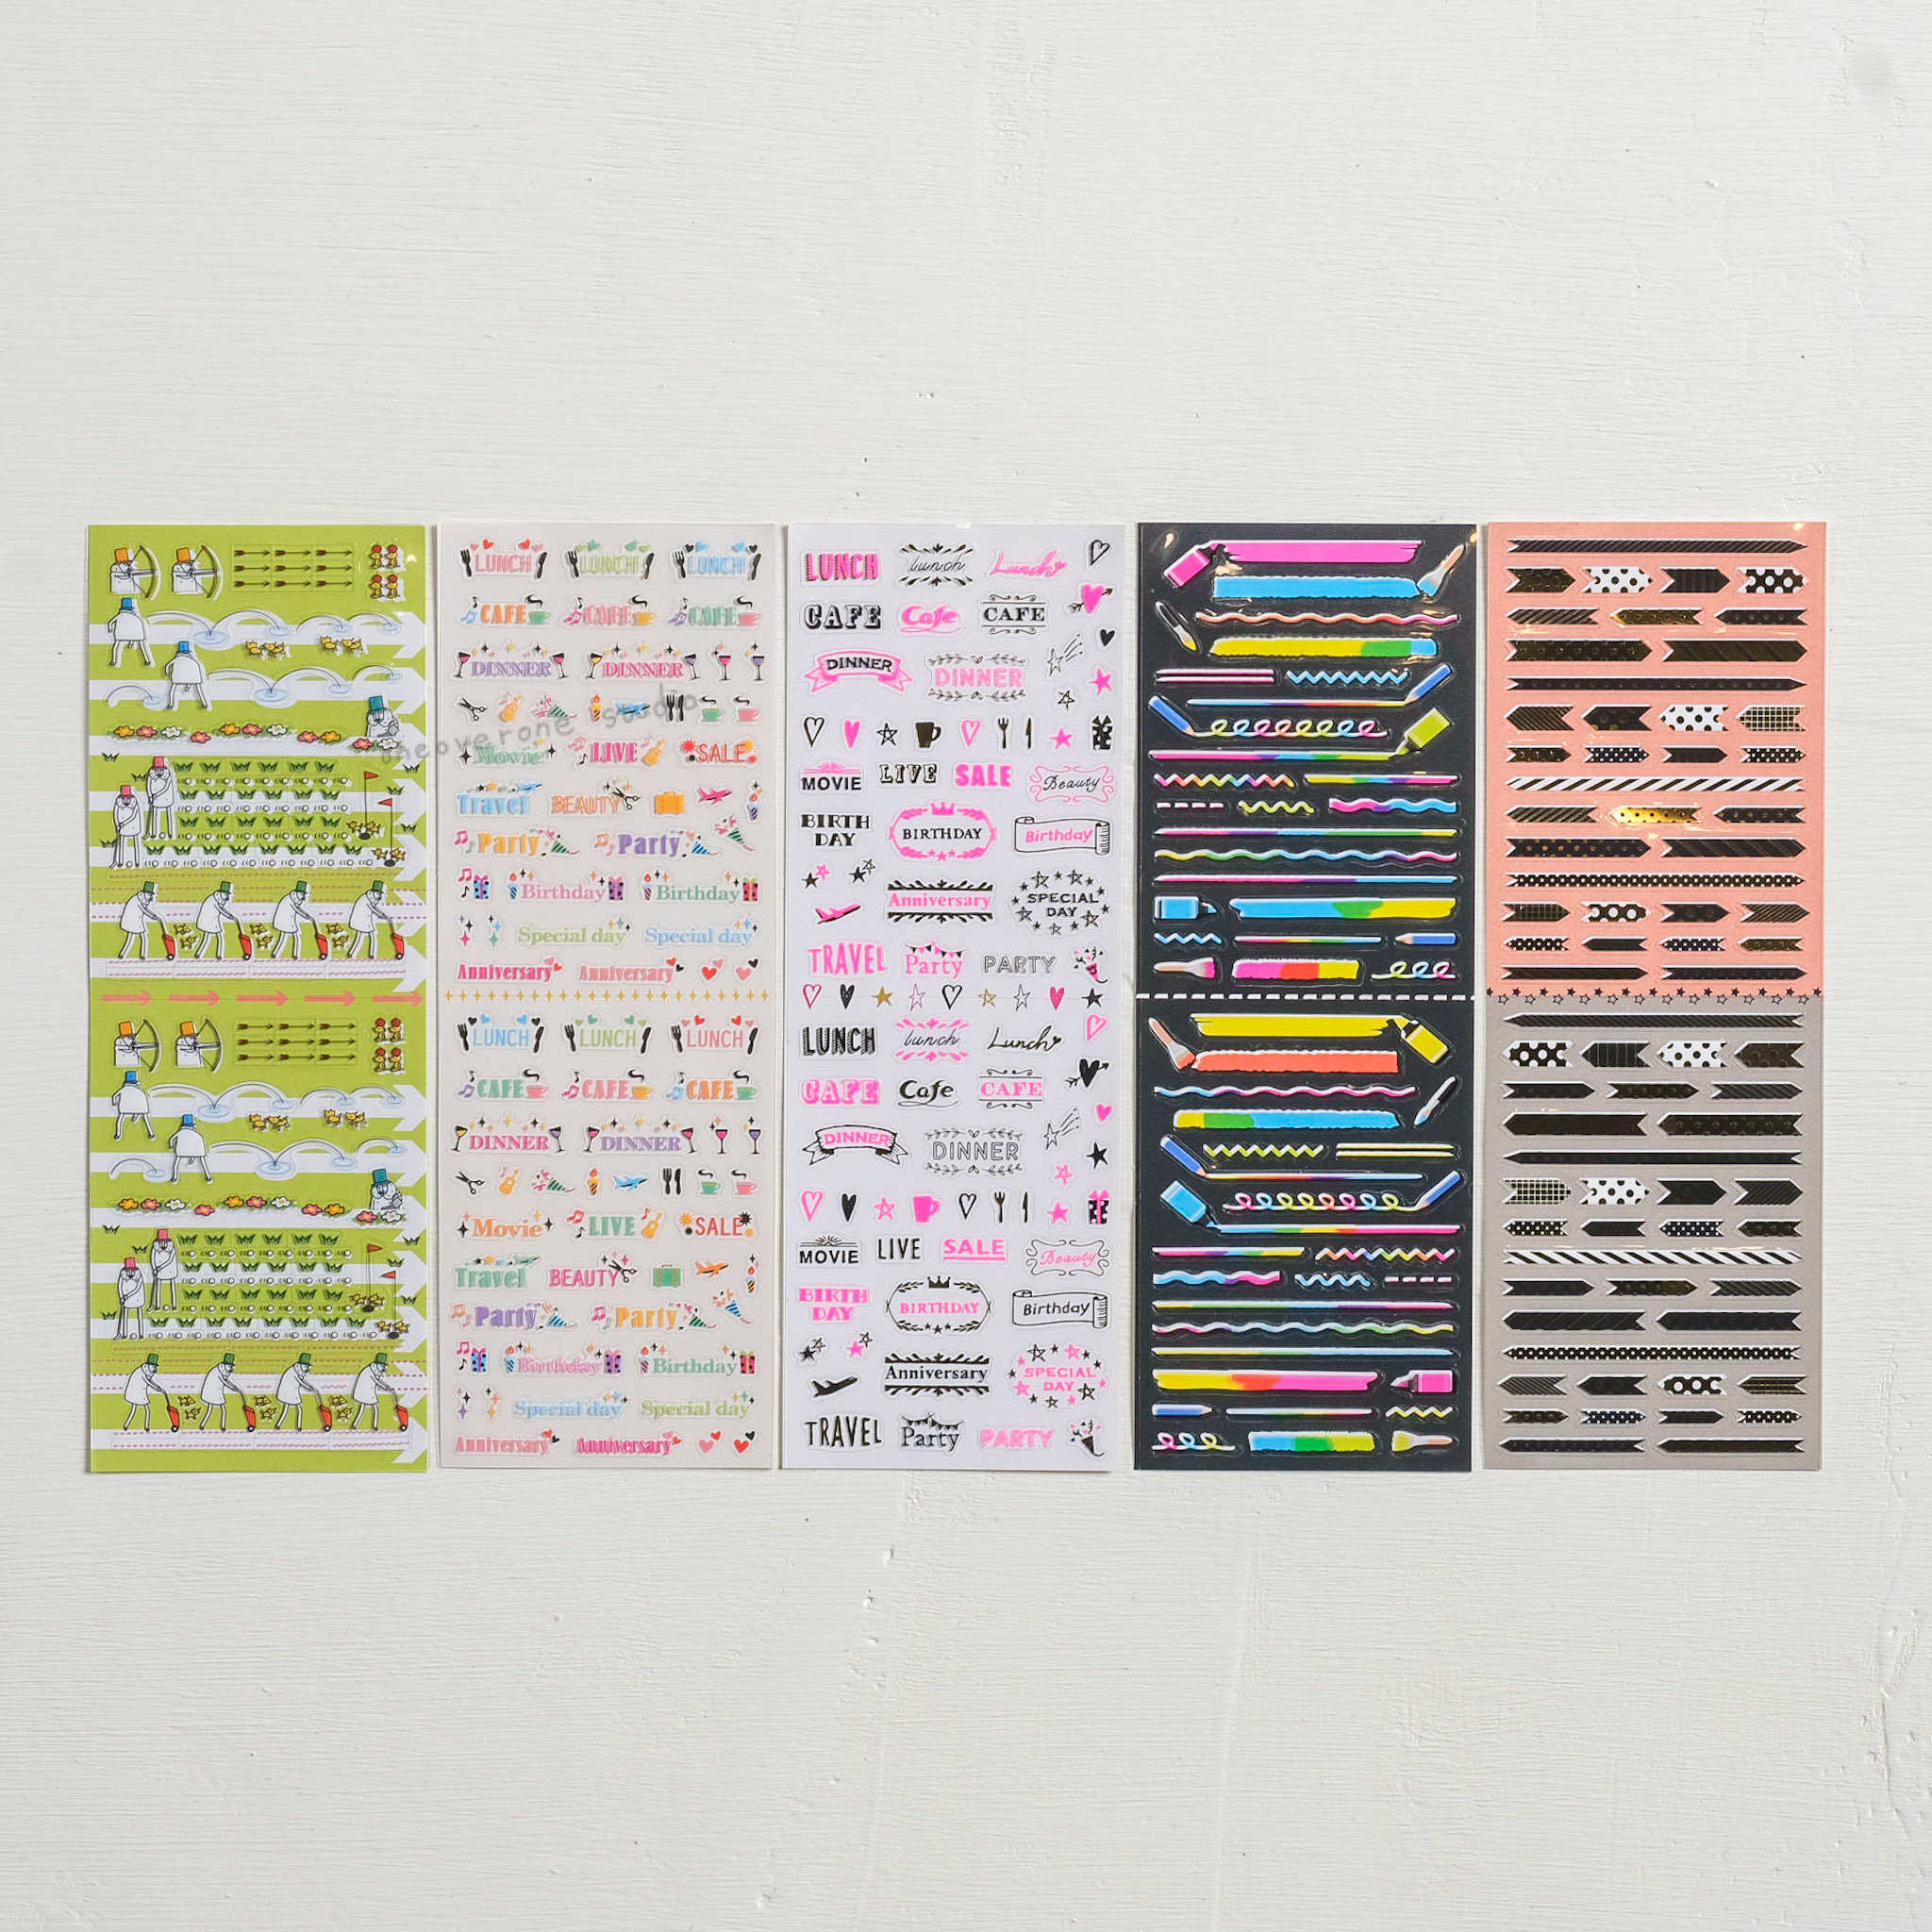 LUNCH LUNCH LUNCH
CAFE CAFE CAFE
DINNER DINNER
oneoverone studio
Movie LIVE SALE
Travel BEAUTY
Party Party
Birthday Birthday
Special day Special day
Anniversary Anniversary
LUNCH LUNCH LUNCH
CAFE CAFE CAFE
DINNER DINNER
Movie LIVE SALE
Travel BEAUTY
Party Party
Birthday Birthday
Special day Special day
Anniversary Anniversary
LUNCH lunch Lunch
CAFE Cafe CAFE
DINNER DINNER
MOVIE LIVE SALE Beauty
BIRTH
DAY
BIRTHDAY Birthday
Anniversary
SPECIAL
DAY
TRAVEL Party PARTY
LUNCH lunch Lunch
CAFE Cafe CAFE
DINNER DINNER
MOVIE LIVE SALE Beauty
BIRTH
DAY
BIRTHDAY Birthday
Anniversary
SPECIAL
DAY
TRAVEL Party PARTY